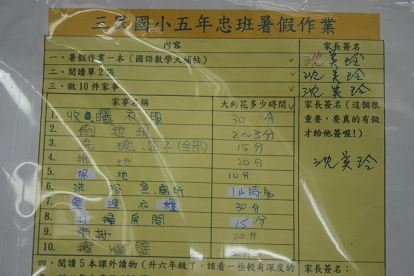 三民國小五年忠班暑假作業
內容 家長簽名
一、暑假作業一本(國語數學大補帖) ✓ 沈美玲
二、閱讀單2張 ✓ 沈美玲
三、做10件家事 ✓ 沈美玲
家事名稱 大約花多少時間 家長簽名(這個很重要,要真的有做才給他簽喔!)
1. 收曬衣服 30分
2. 2~3分
3. 15分
4. 掃地 20分
沈美玲
5. 地 10分
6. 洗浴室廁所 1小時
7. 整理衣櫃 30分
8. 打掃房間 15分
9. 20分
10.
四、閱讀5本課外讀物(升六年級了,該看一些較有深度的